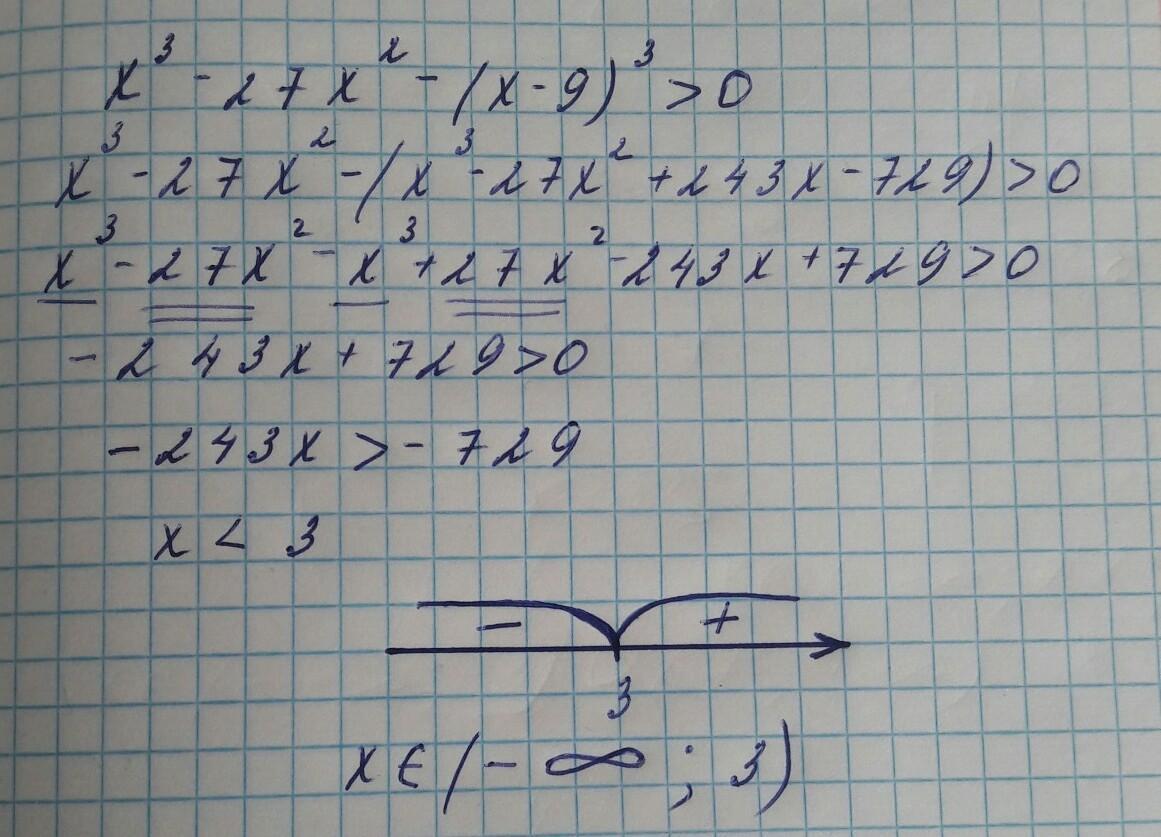 x³ - 27x² - (x - 9)³ > 0
x³ - 27x² - (x³ - 27x² + 243x - 729) > 0
x³ - 27x² - x³ + 27x² - 243x + 729 > 0
- 243x + 729 > 0
- 243x > - 729
x < 3
- +
3
x ∈ (- ∞ ; 3)